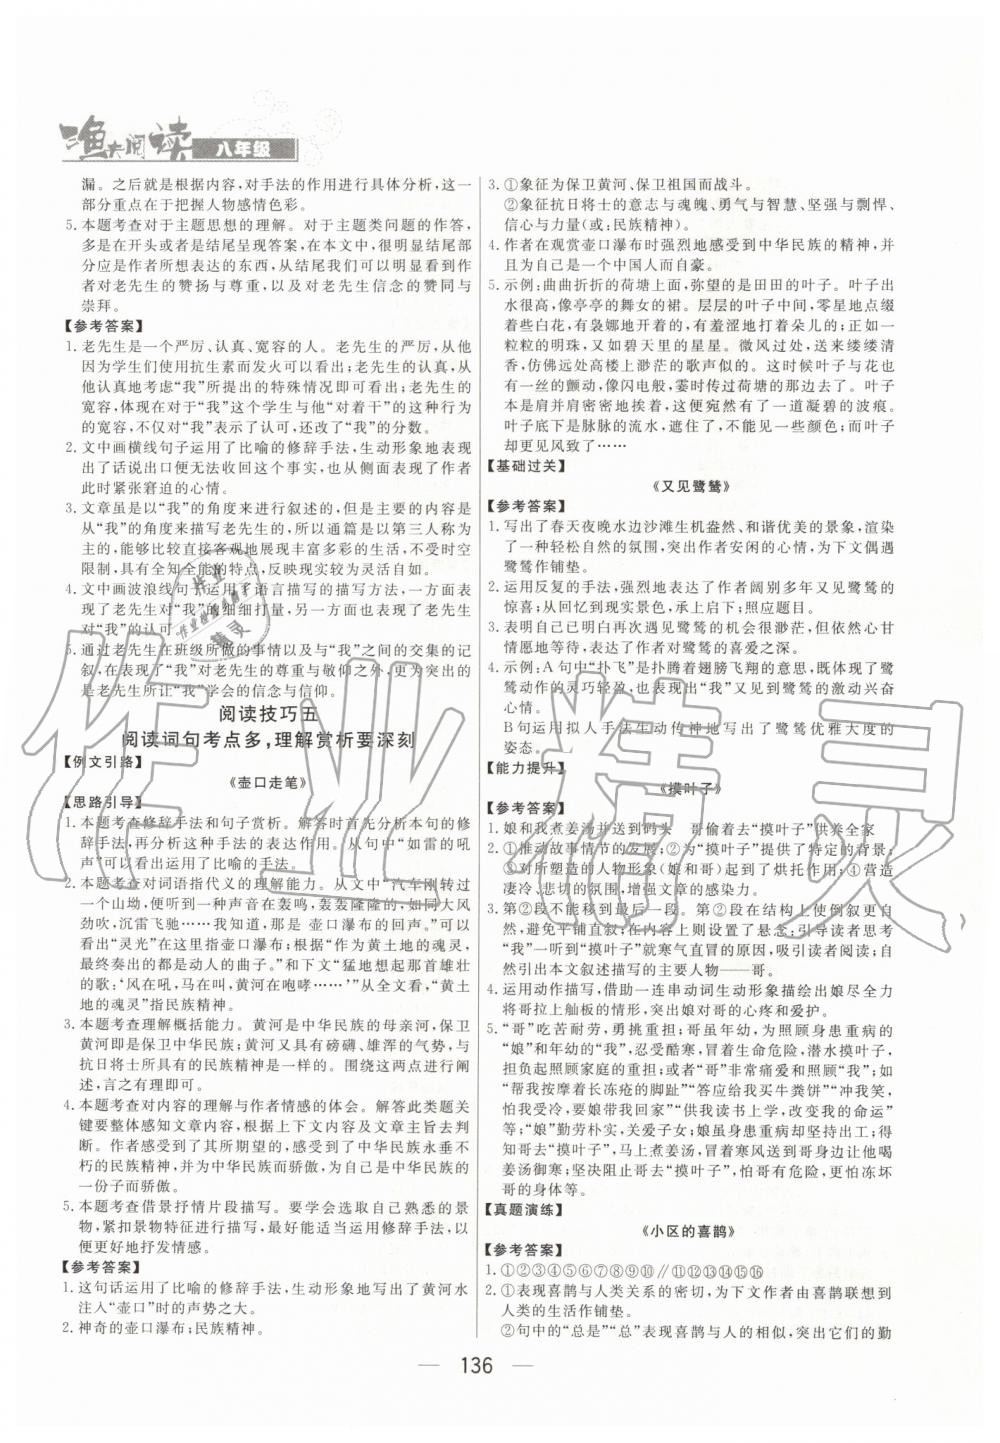 渔夫阅读 八年级
漏。之后就是根据内容，对手法的作用进行具体分析，这一
部分重点在于把握人物感情色彩。
5. 本题考查对于主题思想的理解。对于主题类问题的作答，
多是在开头或者是结尾呈现答案，在本文中，很明显结尾部
分应是作者所想表达的东西，从结尾我们可以看到作者
对老先生的赞扬与尊重，以及对老先生信念的赞同与
崇拜。
【参考答案】
1. 老先生是一个严厉、认真、宽容的人。老先生的严厉，从他
因为学生们使用抗生素而发火可以看出；老先生的认真，从
他认真地考虑“我”所提出的特殊情况即可看出；老先生的
宽容，体现在对于“我”这个学生与他“对着干”的这种行为
的宽容，不仅对“我”表示了认可，还改了“我”的分数。
2. 文中画横线句子运用了比喻的修辞手法，生动形象地表现
出了话说出口便无法收回这个特点，从此外面表现了作者
此时紧张窘迫的心情。
3. 文章虽是以“我”的角度来进行叙述的，但其主要的内容是
从“我”的角度来描写老先生的，所以通篇是以第三人称为
主的，能够比较直接客观地展现丰富多彩的生活，不受时空
限制，具有全知全能的特点，反映现实较为灵活自如。
4. 文中画波浪线句子运用了语言描写的描写方法，一方面表
现了老先生对“我”的细细打量，另一方面也表现了老先生
对“我”的认可。
5. 通过老先生在班级所做的事情以及与“我”之间的交集的记
叙，在表现了“我”对老先生的尊重与敬仰之外，更突出的
是老先生所让“我”学会的信念与信仰。
阅读技巧五
阅读词句考点多，理解赏析要深刻
【例文引路】
《壶口走笔》
【思路引导】
1. 本题考查修辞手法和句子赏析。解答时首先分析本句的修
辞手法，再分析这种手法的表达作用。从句中“如雷的吼
声”可以看出运用了比喻的手法。
2. 本题考查对词语指代义的理解能力。从文中“汽车刚转过
一个山坳，便听到一种声音在轰鸣，轰轰隆隆的，如同大风
劲吹，沉雷飞驰……我知道，那是 壶口瀑布的回声。”可以
看出“灵光”的意象指壶口瀑布；根据“作为黄土地的魂灵，
最终奏出的都是动人的曲子。”下文“猛地想起那首雄壮
的歌：‘风在吼，马在叫，黄河在咆哮……’”从而看出，“黄土
地的魂灵”指民族精神。
3. 本题考查理解概括能力。黄河是中华民族的母亲河，保卫
黄河即是保卫中华民族；黄河又具有磅礴、雄浑的气势，与
抗日将士所具有的民族精神是一样的。围绕这两点进行阐
述，言之有理即可。
4. 本题考查对内容的理解与作者情感的体会。解答此类题关
键要整体感知文章内容，根据上下文内容及文章主旨去判
断。作者感受到了其所期望的，感受到了中华民族永垂不
朽的民族精神，并为中华民族而骄傲，为自己是中华民族的
一份子而骄傲。
5. 本题考查借景抒情片段描写。要学会选取自己熟悉的景
物，紧扣景物特征进行描写，最好能适当运用修辞手法，以
便更好地抒发情感。
【参考答案】
1. 这句话运用了比喻的修辞手法，生动形象地写出了黄河水
注入“壶口”时的声势之大。
2. 神奇的壶口瀑布；民族精神。
3. ①象征为保卫黄河、保卫祖国而战斗。
②象征抗日将士的意志与魂魄、勇气与智慧、坚强与剽悍、
信心与力量(或：民族精神)。
4. 作者在观赏壶口瀑布时强烈地感受到中华民族的精神，并
且为自己是一个中国人而自豪。
5. 示例：曲曲折折的荷塘上面，弥望的是田田的叶子。叶子出
水很高，像亭亭的舞女的裙。层层的叶子中间，零星地点缀
着些白花，有袅娜地开着的，有羞涩地打着朵儿的；正如一
粒粒的明珠，又如碧天里的星星。微风过处，送来缕缕清
香，仿佛远处高楼上渺茫的歌声似的。这时候叶子与花也
有一丝的颤动，像闪电般，霎时传过荷塘的那边去了。叶子
本是肩并肩密密地挨着，这便宛然有了一道凝碧的波痕。
叶子底下是脉脉的流水，遮住了，不能见一些颜色；而叶子
却更见风致了……
【基础过关】
《又见鹭鸶》
【参考答案】
1. 写出了春天夜晚水边沙滩生机盎然、和谐优美的景象，渲染
了一种轻松自然的氛围，突出作者安闲的心情，为下文偶遇
鹭鸶作铺垫。
2. 运用反复的手法，强烈地表现了作者阔别多年又见鹭鸶的
惊喜；从回忆到现实，承上启下；照应题目。
3. 表明自己已明白再次遇见鹭鸶的机会很渺茫，但依然心甘
情愿地等待，表达了作者对鹭鸶的喜爱之深。
4. 示例：A 句中“扑飞”是扑腾着翅膀飞翔的意思，既体现了鹭
鸶动作的灵巧轻盈，也体现了“我”又见到鹭鸶的激动兴奋
心情。
B 句运用拟人手法生动传神地写出了鹭鸶优雅大度的
姿态。
【能力提升】
《摸叶子》
【参考答案】
1. 娘和我煮姜汤并送到码头　哥偷着去“摸叶子”供养全家
2. ①推动故事情节的发展；②为“摸叶子”提供了特定的背景；
③对所塑造的人物形象(娘和哥)起了烘托作用；④营造
凄冷、悲切的氛围，增强文章的感染力。
3. 第②段不能移到最后一段。第②段在结构上使倒叙更自
然，避免平铺直叙；在内容上则设置了悬念；引导读者思考
“我”一听到“摸叶子”就寒气直冒的原因，吸引读者阅读；自
然引出本文叙述描写的主要人物——哥。
4. 运用动作描写，借助一连串动词生动形象描绘出娘尽全力
将哥拉上舢板的情形，突出娘对哥的心疼和爱护。
5. “哥”吃苦耐劳，勇挑重担；哥虽年幼，为照顾身患重病的
“娘”和年幼的“我”，忍受酷寒，冒着生命危险，潜水摸叶子，
担负起照顾家庭的重担；或者“哥”非常痛爱和照顾“我”；如
“帮我按摩着长冻疮的脚趾”“答应给我买牛粪饼”“冲我笑，
怕我受冷，要娘带我回家”“供我读书上学，改变我的命运”
等；“娘”勤劳朴实，关爱子女；娘身患重病，却坚持出工；得
知哥去“摸叶子”，马上煮姜汤，冒着寒风送到码头，并让他喝
姜汤御寒；坚决阻止哥去“摸叶子”，怕哥有危险，更怕冻坏
哥的身体等。
【真题演练】
《小区的喜鹊》
【参考答案】
1. ①②③④⑤⑥⑦⑧⑨⑩∥⑪⑫⑬⑭⑮⑯
2. ①表现喜鹊与人类关系的密切，为下文作者由喜鹊联想到
人类的生活作铺垫。
②句中的“总是”“总”表现喜鹊与人的相似，突出它们的勤
— 136 —
作业精灵